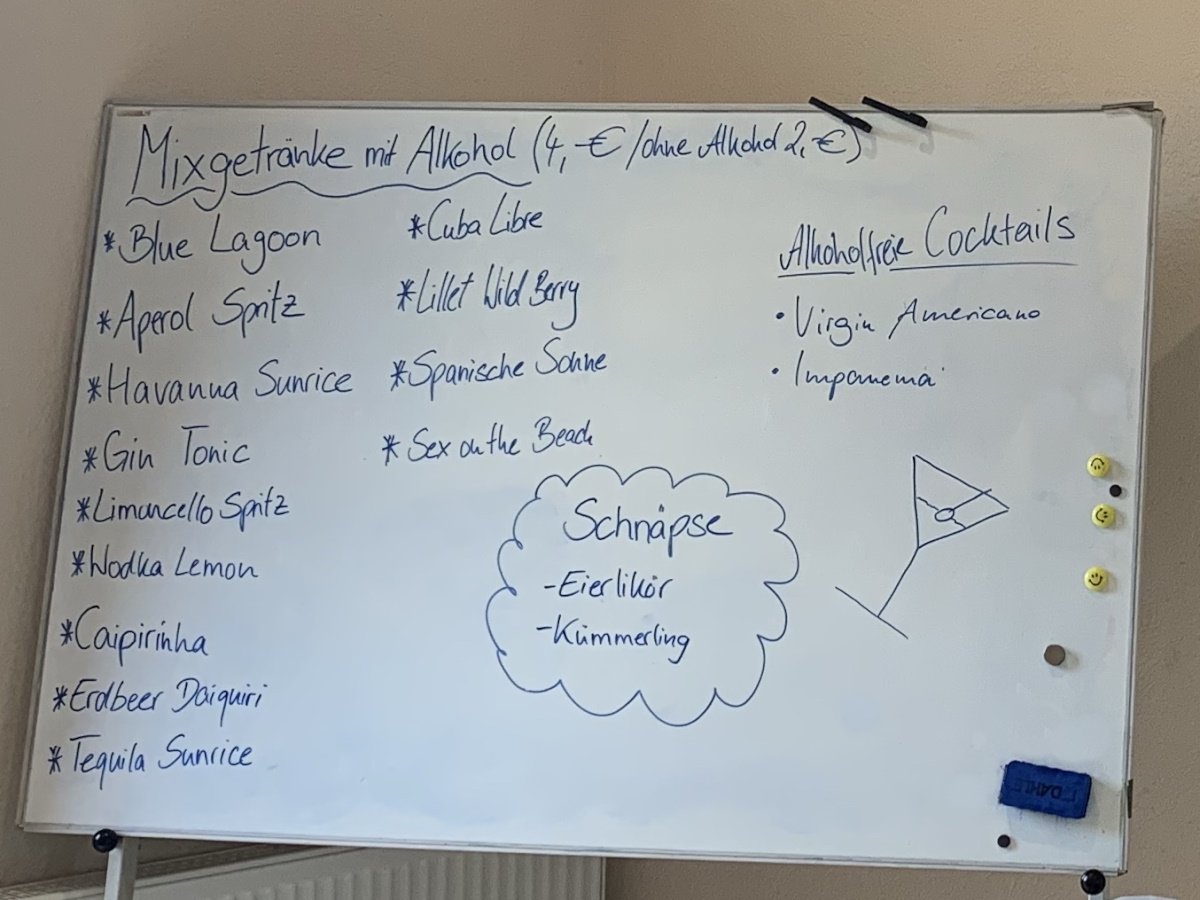 Mixgetränke mit Alkohol (4,-€/ohne Alkohol 2,€)
*Blue Lagoon
*Aperol Spritz
*Havanna Sunrice
*Gin Tonic
*Limoncello Spritz
*Wodka Lemon
*Caipirinha
*Erdbeer Daiquiri
*Tequila Sunrice
*Cuba Libre
*Lillet Wild Berry
*Spanische Sonne
*Sex on the Beach
Schnäpse
-Eierlikör
-Kümmerling
Alkoholfreie Cocktails
• Virgin Americano
• Impanema
DAHLE